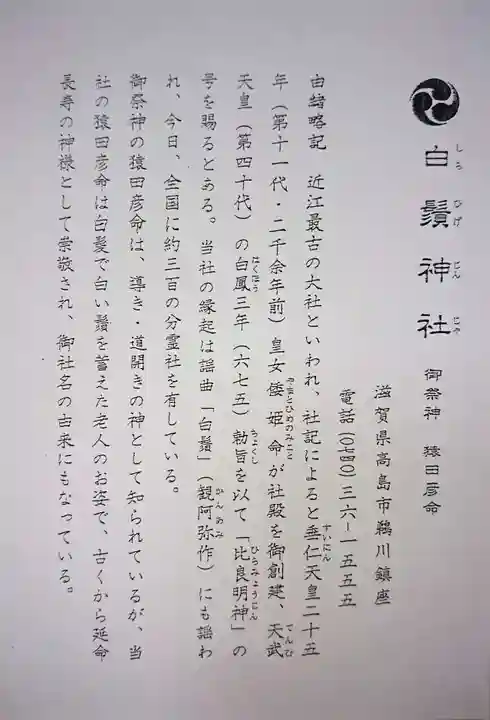 白鬚神社
しらひげじんじゃ
御祭神 猿田彦命
滋賀県高島市鵜川鎮座
電話(〇七四〇)三六-一五五五
由緒略記 近江最古の大社といわれ、社記によると垂仁天皇二十五
年(第十一代・二千余年前)皇女倭姫命が社殿を御創建、天武
天皇(第四十代)の白鳳三年(六七五)勅旨を以て「比良明神」の
号を賜るとある。当社の縁起は謡曲「白鬚」(観阿弥作)にも謡わ
れ、今日、全国に約三百の分霊社を有している。
御祭神の猿田彦命は、導き・道開きの神として知られているが、当
社の猿田彦命は白髪で白い鬚を蓄えた老人のお姿で、古くから延命
長寿の神様として崇敬され、御社名の由来にもなっている。